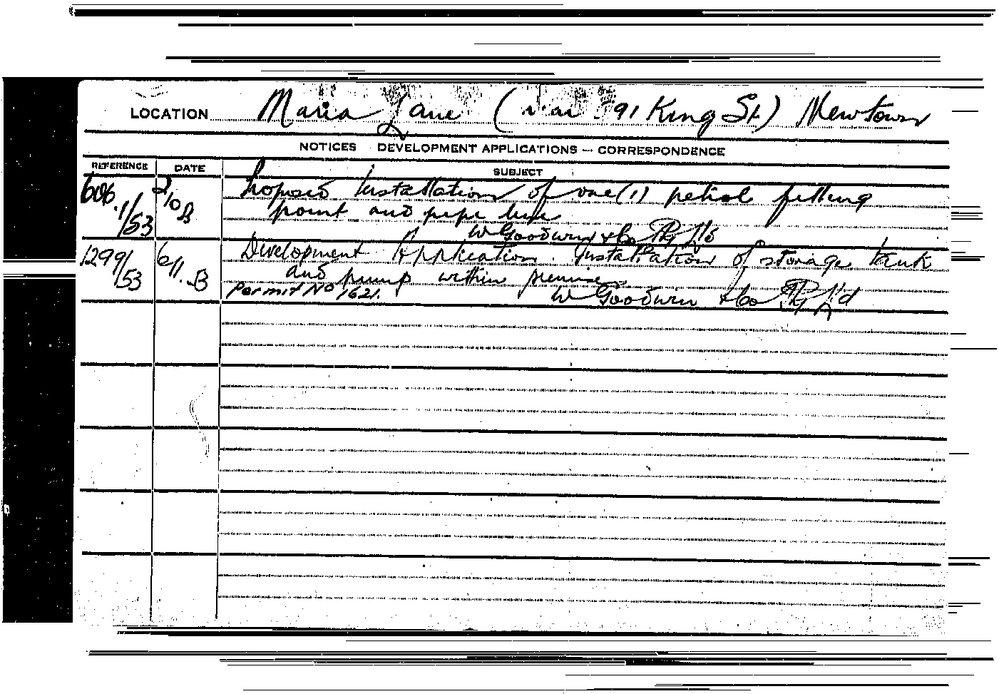 LOCATION Maria Lane ( 91 King St.) Newtown
NOTICES DEVELOPMENT APPLICATIONS — CORRESPONDENCE
REFERENCE DATE SUBJECT
606.1/53 Proposed Installation of one (1) petrol filling
point and pipe line
W Goodwin & Co Pty Ltd
1299/53 Development Application. Installation of storage tank
and pump within premises
Permit No 1621. W Goodwin & Co Pty Ltd